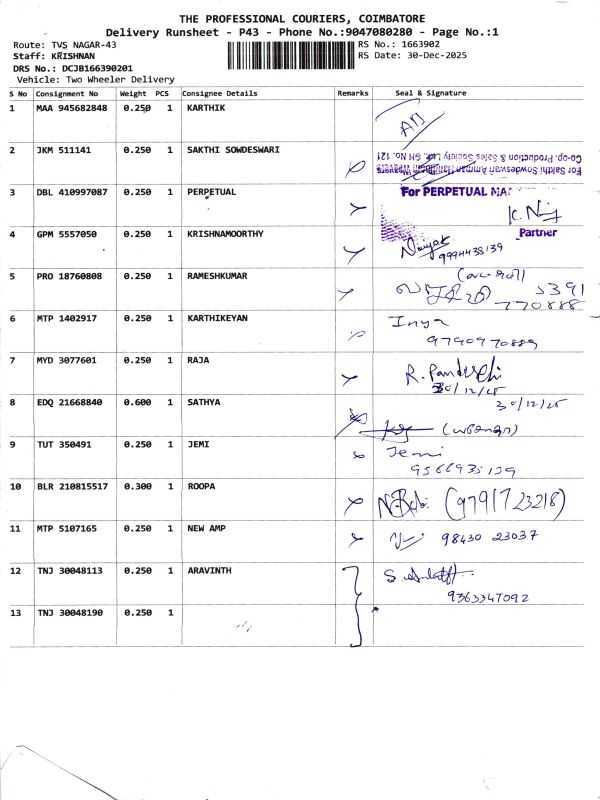 THE PROFESSIONAL COURIERS, COIMBATORE
Delivery Runsheet - P43 - Phone No.:9047080280 - Page No.:1
Route: TVS NAGAR-43 RS No.: 1663902
Staff: KRISHNAN RS Date: 30-Dec-2025
DRS No.: DCJB166390201
Vehicle: Two Wheeler Delivery
S No Consignment No Weight PCS Consignee Details Remarks Seal & Signature
1 MAA 945682848 0.250 1 KARTHIK
2 JKM 511141 0.250 1 SAKTHI SOWDESWARI
For Sakthi Sowdeswari Amman Handloom Weavers
Co-op. Production & Sales Society Ltd., GH No. 121
3 DBL 410997087 0.250 1 PERPETUAL
For PERPETUAL
Partner
4 GPM 5557050 0.250 1 KRISHNAMOORTHY
9994438139
5 PRO 18760808 0.250 1 RAMESHKUMAR
770888
6 MTP 1402917 0.250 1 KARTHIKEYAN Inya
9790970889
7 MYD 3077601 0.250 1 RAJA R. Panduchi
30/12/25
8 EDQ 21668840 0.600 1 SATHYA 30/12/25
9 TUT 350491 0.250 1 JEMI Jemi
9566935129
10 BLR 210815517 0.300 1 ROOPA (9791723218)
11 MTP 5107165 0.250 1 NEW AMP 98430 23037
12 TNJ 30048113 0.250 1 ARAVINTH
9363347092
13 TNJ 30048190 0.250 1